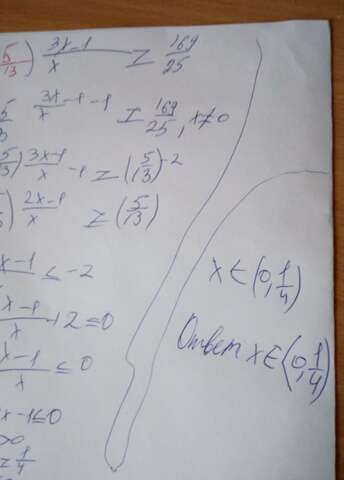 5/13) 3x-1/x ≥ 169/25
3x/x - 1 - 1 ≥ 169/25, x≠0
5/13) 3x-1/x - 1 ≥ (5/13)^-2
) 2x-1/x ≥ (5/13)
x-1 ≤ -2
x-1/x + 2 ≤ 0
x-1/x ≤ 0
x-1≤0
≥ 1/4
x∈(0, 1/4)
Ответ x∈(0, 1/4)